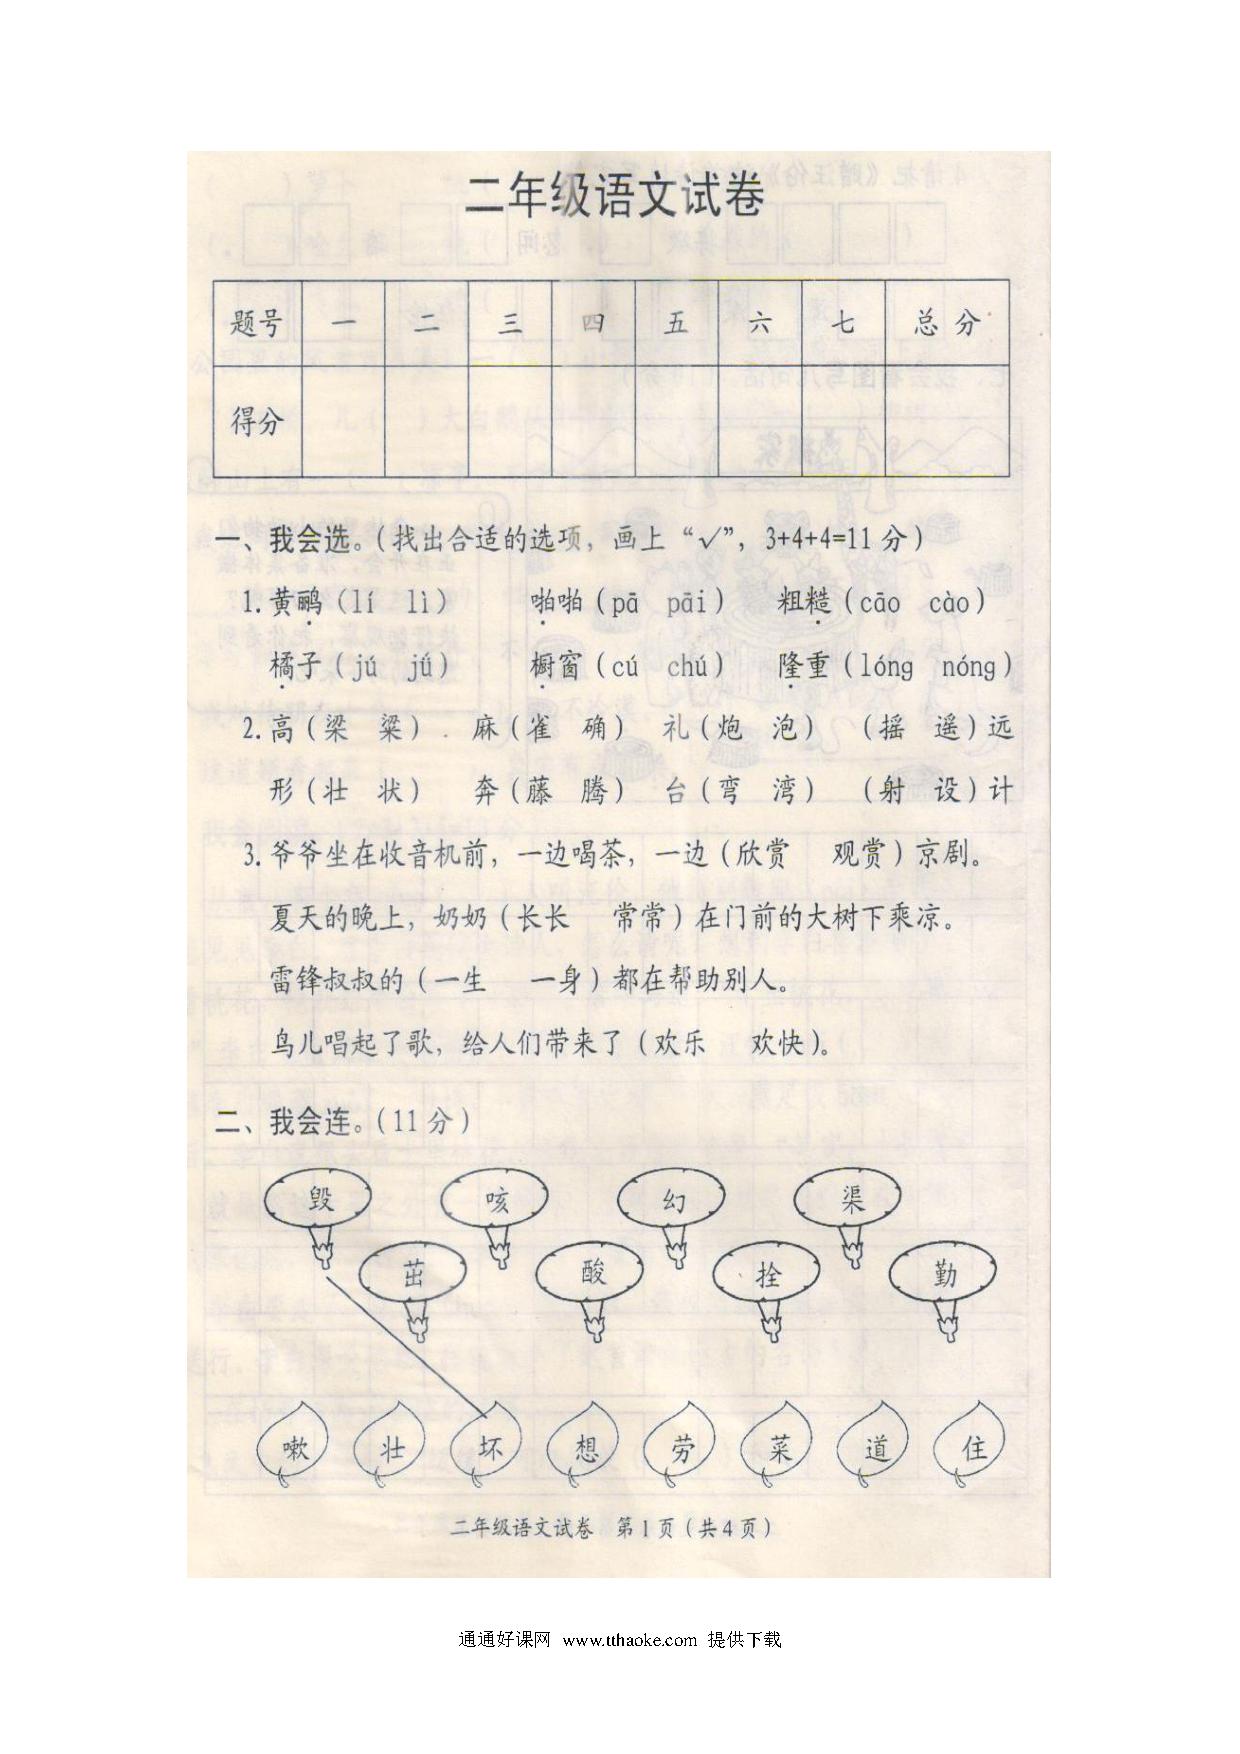 二年级语文试卷
题号 一 二 三 四 五 六 七 总分
得分
一、我会选。（找出合适的选项，画上“√”，3+4+4=11分）
1.黄鹂（lí lì） 啪啪（pā pāi） 粗糙（cāo cào）
橘子（jú jǘ） 橱窗（cú chú） 隆重（lóng nóng）
2.高（梁 粱） 麻（雀 确） 礼（炮 泡） （摇 遥）远
形（壮 状） 奔（藤 腾） 台（弯 湾） （射 设）计
3.爷爷坐在收音机前，一边喝茶，一边（欣赏 观赏）京剧。
夏天的晚上，奶奶（长长 常常）在门前的大树下乘凉。
雷锋叔叔的（一生 一身）都在帮助别人。
鸟儿唱起了歌，给人们带来了（欢乐 欢快）。
二、我会连。（11分）
毁 咳 幻 渠
茁 酸 拴 勤
嗽 壮 坏 想 劳 菜 道 住
二年级语文试卷 第1页（共4页）
通通好课网 www.tthaoke.com 提供下载